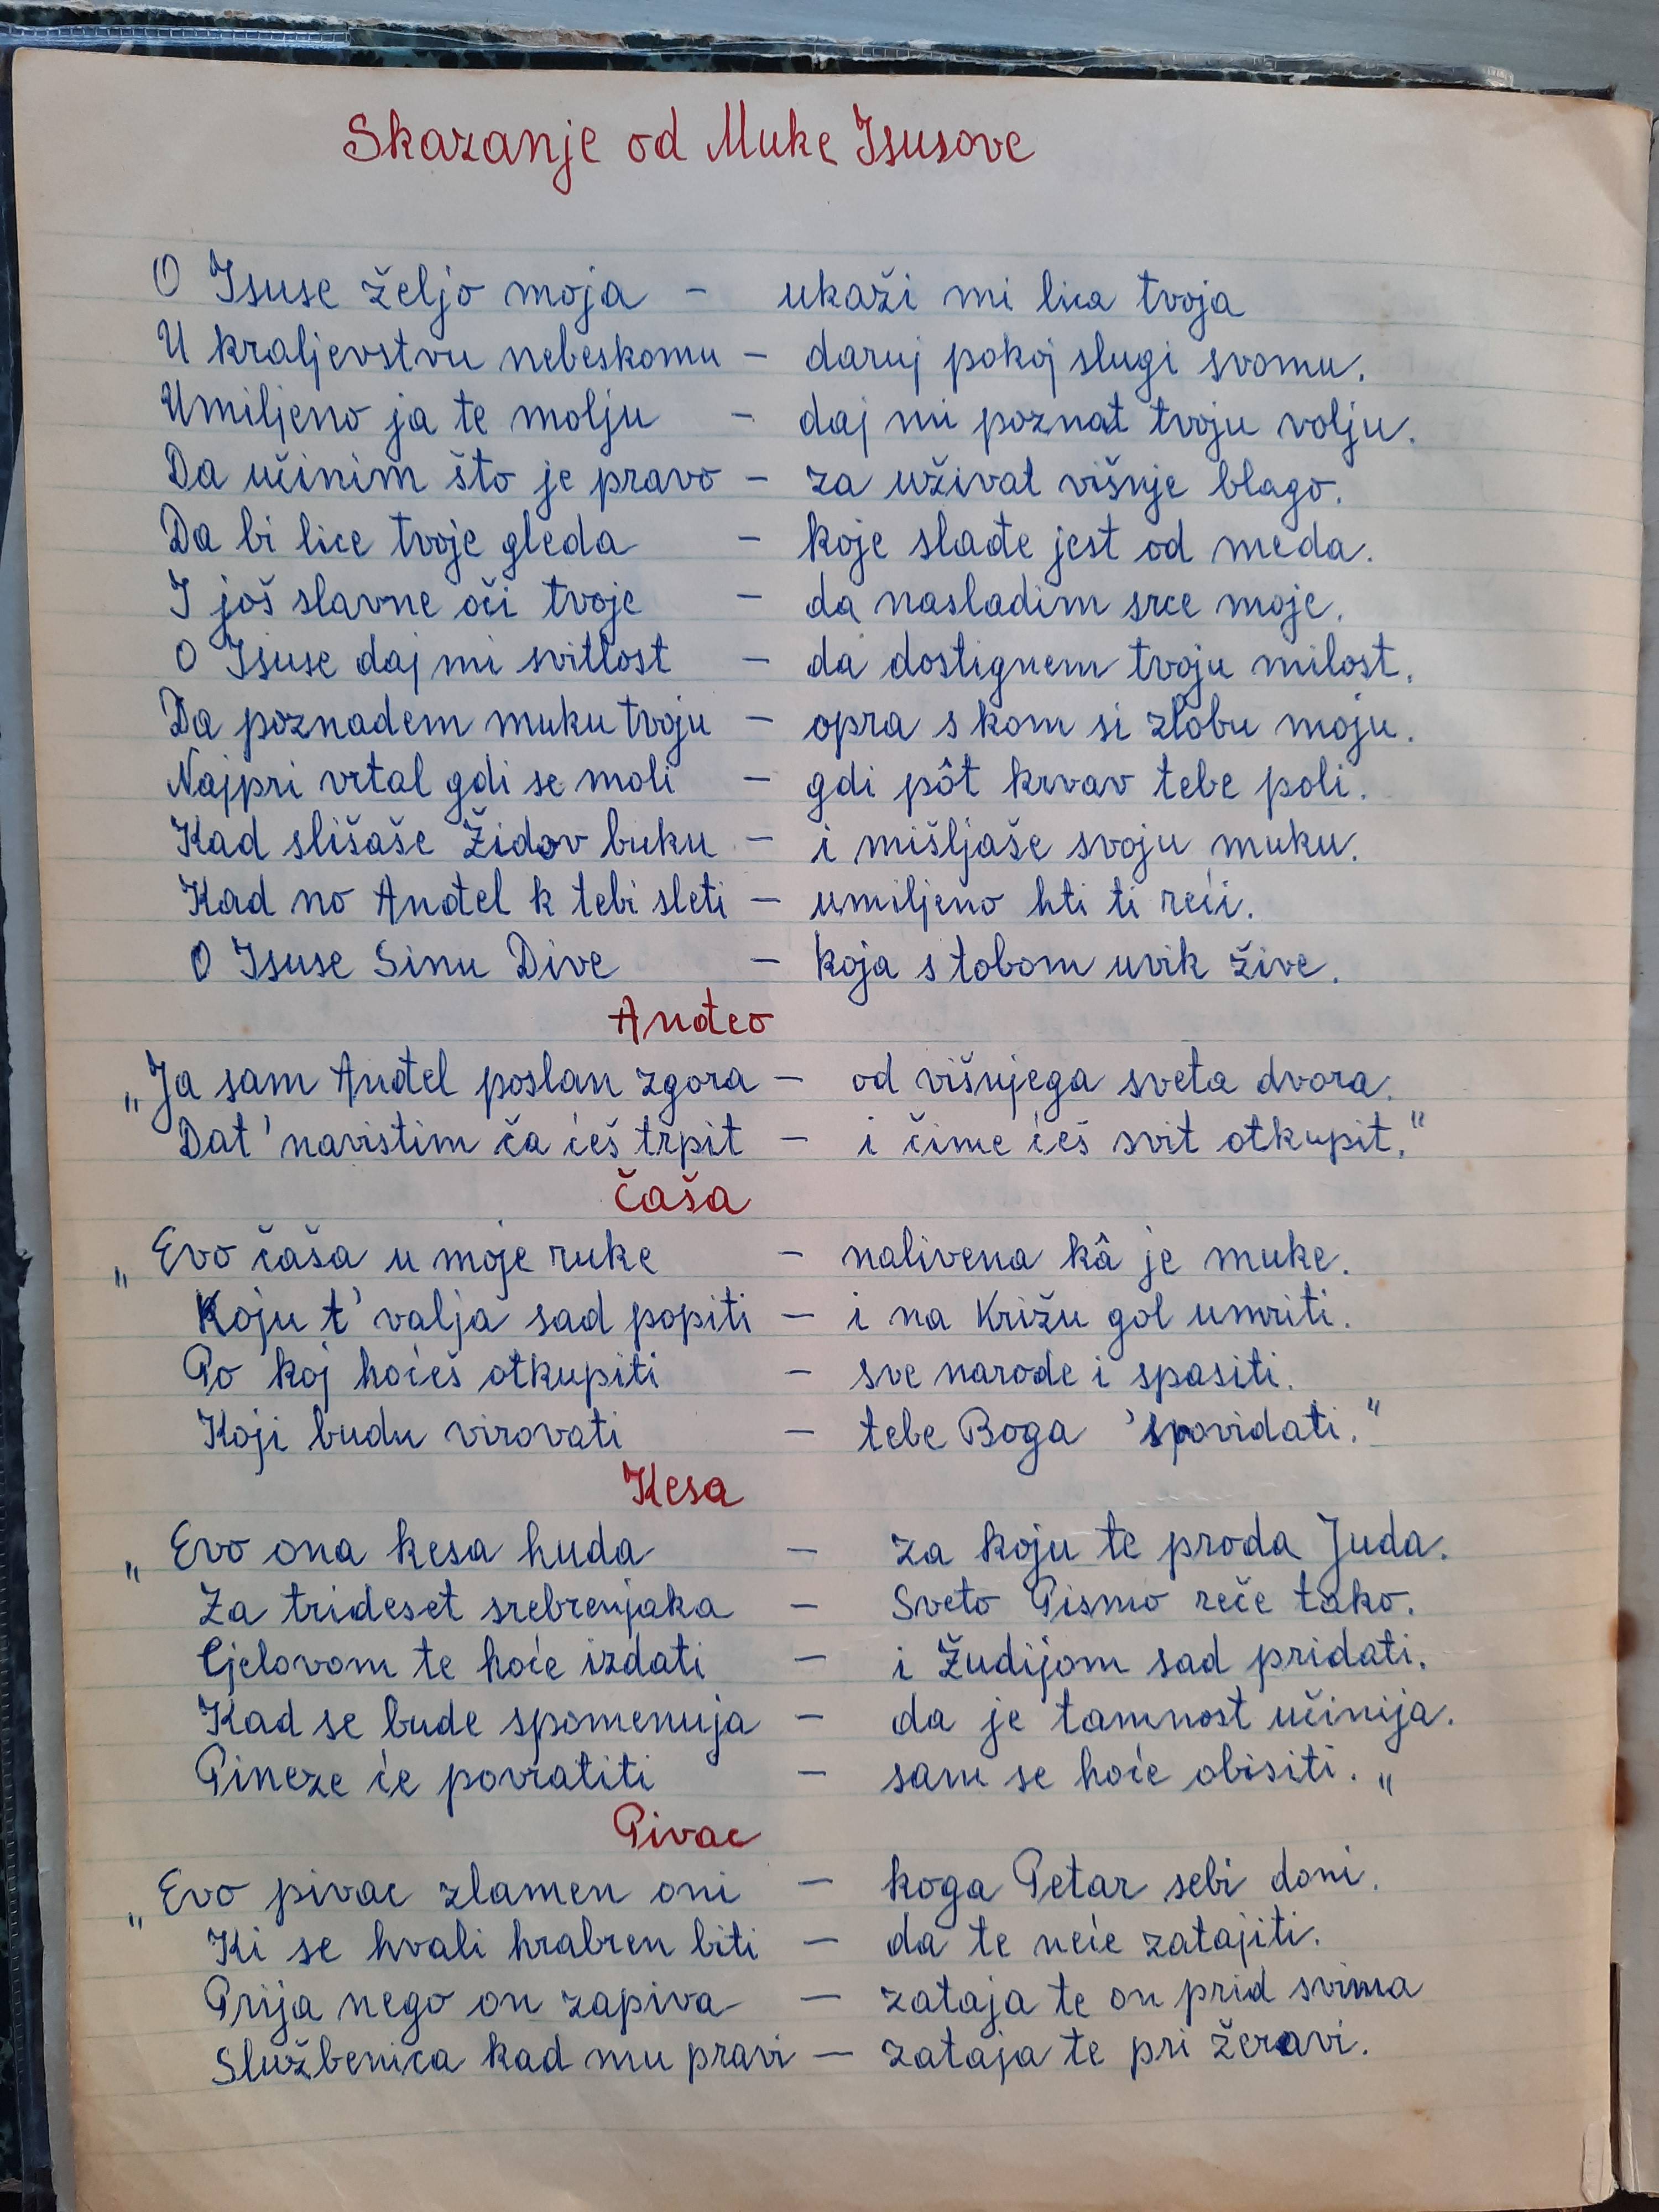 Skazanje od Muke Isusove
O Isuse željo moja - ukaži mi lica tvoja
U kraljevstvu nebeskomu - daruj pokoj slugi svomu.
Umiljeno ja te molju - daj mi poznat tvoju volju.
Da učinim što je pravo - za uživat višnje blago.
Da bi lice tvoje gleda - koje slađe jest od meda.
I još slavne oči tvoje - da nasladim srce moje.
O Isuse daj mi svitlost - da dostignem tvoju milost.
Da poznadem muku tvoju - opra s kom si zlobu moju.
Najpri vrtal gdi se moli - gdi pôt krvav tebe poli.
Kad slišaše Židov buku - i mišljaše svoju muku.
Kad no Anđel k tebi sleti - umiljeno hti ti reći.
O Isuse Sinu Dive - koja s tobom uvik žive.
Anđeo
„Ja sam Anđel poslan zgora - od višnjega sveta dvora.
Dat' navistim ča ćeš trpit - i čime ćeš svit otkupit."
Čaša
„Evo čaša u moje ruke - nalivena kâ je muke.
Koju t' valja sad popiti - i na Križu gol umriti.
Po koj hoćeš otkupiti - sve narode i spasiti.
Koji budu virovati - tebe Boga 'spovidati."
Kesa
„Evo ona kesa huda - za koju te proda Juda.
Za trideset srebrenjaka - Sveto Pismo reče tako.
Cjelovom te hoće izdati - i Žudijom sad pridati.
Kad se bude spomenuja - da je tamnost učinija.
Pineze će povratiti - sam se hoće obisiti.„
Pivac
„Evo pivac zlamen oni - koga Petar sebi doni.
Ki se hvali hrabren biti - da te neće zatajiti.
Prija nego on zapiva - zataja te on prid svima
Službenica kad mu pravi - zataja te pri žeravi.